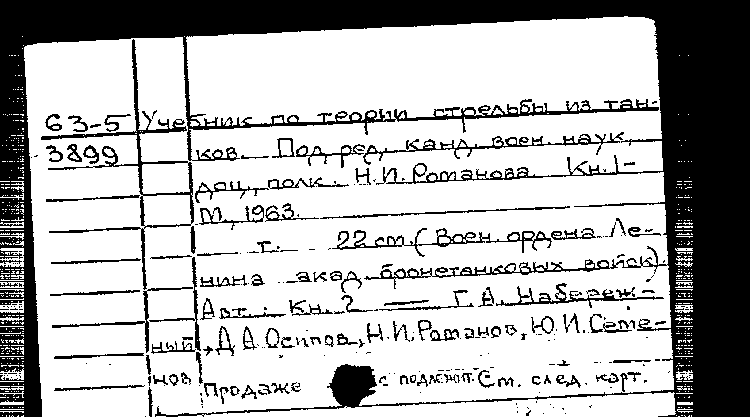 63-5 Учебник по теории стрельбы из тан-
3899 ков. Под ред. канд. воен. наук,
доц., полк. Н.И. Романова. Кн. 1-
М., 1963.
т. 22 см. (Воен. ордена Ле-
нина акад. бронетанковых войск).
Авт.: Кн. 2 — Г.А. Набереж-
ный, Д.А. Осипов, Н.И. Романов, Ю.И. Семе-
нов
Продаже подлежит. См. след. карт.